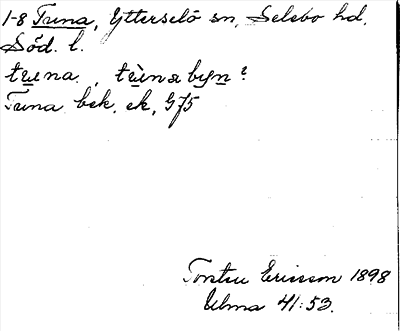 1-8 Tuna, Ytterselö sn, Selebo hd.
Söd. l.
tu̲na, tu̲̇na by̲n̲ ?
Tuna bek. ek. G75
Torsten Ericsson 1898
Ulma 41:53.